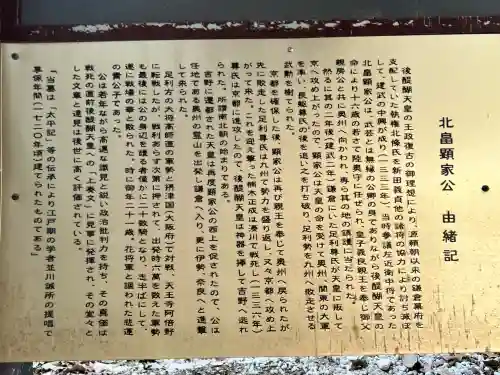 北畠顕家公 由緒記
後醍醐天皇の王政復古の御理想により、源頼朝以来の鎌倉幕府を
支配していた執権北條氏を新田義貞他の諸将の協力により討ち滅ぼ
して、建武の中興が成り(一三三三年)、当時参議左近衛中将であった
北畠顕家公は、武芸とは無縁の公卿の身でありながら後醍醐天皇の
命により十六歳の若さで陸奥守に任ぜられ、皇子義良親王を奉じ御父
親房公と共に奥州へ向かわれ、専ら其の地の慰撫に当たられた。
然るに其の二年後(建武二年)鎌倉にいた足利尊氏が天皇に叛して
京へ攻め上がったので、顕家公は天皇の命を受けて奥州、関東の大軍
を率い、長駆尊氏の後を追い之を打ち破り、足利勢を九州へ敗走させる
武勲を樹てられた。
京都を確保した後、顕家公は再び親王を奉じて奥州へ戻られたが
先に敗走した足利尊氏は九州で勢力を盛り返し、又々京都へ攻め上
がって来た。これを迎え撃った楠木正成は湊川で戦死し(一三三六年)
尊氏は京都に進攻したので、後醍醐天皇は神器を捧じて吉野へ逃れ
られた。所謂南北朝の始まりである。
吉野に遷幸された天皇から再度顕家公の西上を促されたので、公は
任地である奥州の霊山を出発し鎌倉へ入り、更に伊勢、奈良へと進撃
して来られた。
足利方の大将高師直の軍勢と摂津国(大阪府)で対戦、天王寺阿倍野
に転戦したが、戦利あらず次第に押されて、出発時六萬を数えた軍勢
も最後には公の身辺を護る者僅かに二十数騎となり、志半ばにして、
遂に戦場の華と散られた。時に御年二十一歳。花将軍と謳われた悲運
の貴公子であった。
公は若年ながら高邁な識見と鋭い政治批判力を持ち、その真価は
戦死の直前後醍醐天皇への「上奏文」に見事に発揮され、その堂々と
した文章と達見は後世に高く評価されている。
「当墓は、「太平記」等の伝承により江戸期の学者並川誠所の提唱で
享保年間(一七二〇年頃)建てられたものである」